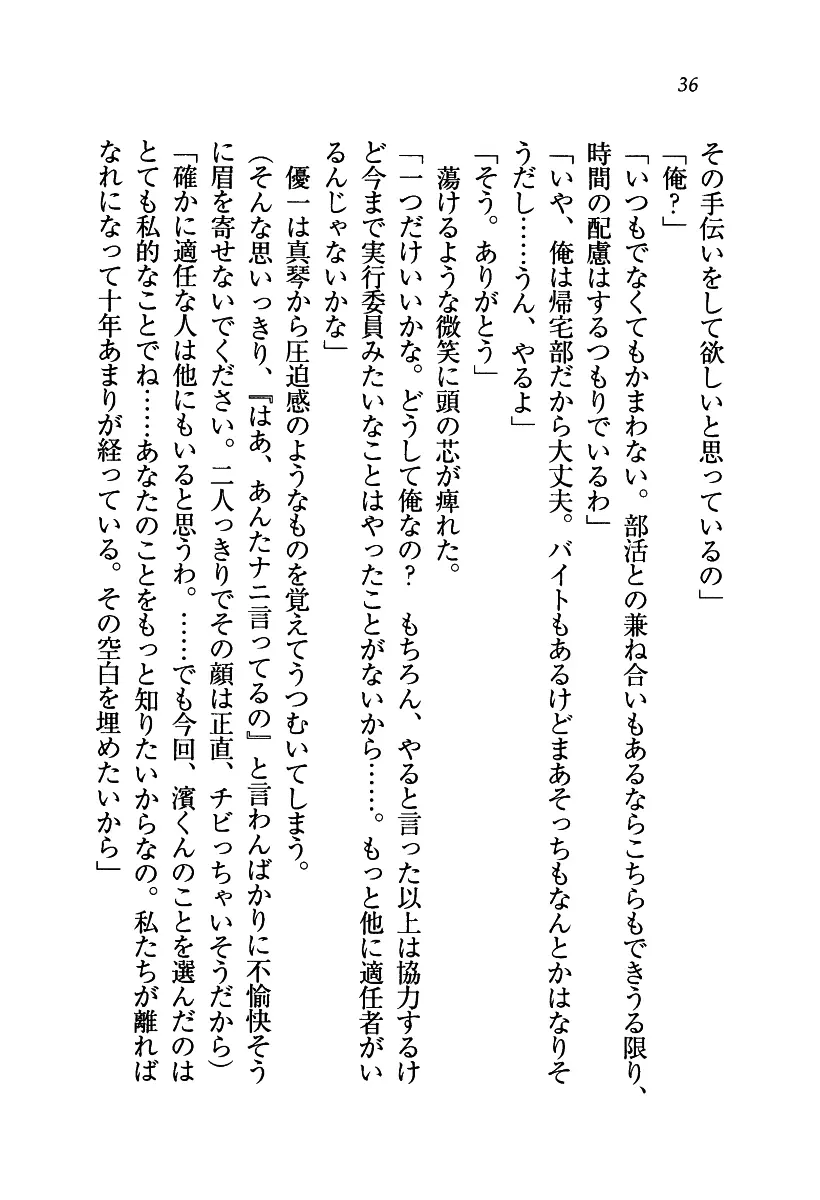 36
その手伝いをして欲しいと思っているの」
「俺?」
「いつもでなくてもかまわない。部活との兼ね合いもあるならこちらもできうる限り、
時間の配慮はするつもりでいるわ」
「いや、俺は帰宅部だから大丈夫。バイトもあるけどまあそっちもなんとかはなりそ
うだし……うん、やるよ」
「そう。ありがとう」
　蕩けるような微笑に頭の芯が痺れた。
「一つだけいいかな。どうして俺なの?　もちろん、やると言った以上は協力するけ
ど今まで実行委員みたいなことはやったことがないから……。もっと他に適任者がい
るんじゃないかな」
　優一は真琴から圧迫感のようなものを覚えてうつむいてしまう。
(そんな思いっきり、『はあ、あんたナニ言ってるの』と言わんばかりに不愉快そう
に眉を寄せないでください。二人っきりでその顔は正直、チビっちゃいそうだから)
「確かに適任な人は他にもいると思うわ。……でも今回、濱くんのことを選んだのは
とても私的なことでね……あなたのことをもっと知りたいからなの。私たちが離れば
なれになって十年あまりが経っている。その空白を埋めたいから」